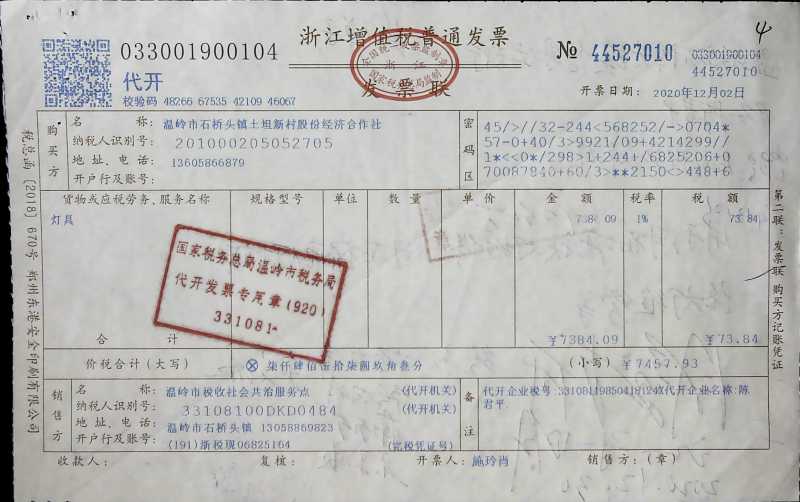 033001900104
浙江增值税普通发票
发票联
№ 44527010
033001900104
44527010
代开
校验码 48266 67535 42109 46067
开票日期: 2020年12月02日
税总函〔2018〕670号 郑州东港安全印刷有限公司
购买方
名称: 温岭市石桥头镇土坦新村股份经济合作社
纳税人识别号: 201000205052705
地址、电话: 13605866879
开户行及账号:
密码区
45/>//32-244<568252/->0704*
57-0+40/3>9921/09+4214299//
1*<<0*/298>1+244+/6825206+0
70087840+60/3>**2150<>448+6
货物或应税劳务、服务名称 规格型号 单位 数量 单价 金额 税率 税额
灯具 7384.09 1% 73.84
国家税务总局温岭市税务局
代开发票专用章(920)
331081
合计 ￥7384.09 ￥73.84
价税合计(大写) ⊗柒仟肆佰伍拾柒圆玖角叁分 (小写) ￥7457.93
第二联:发票联 购买方记账凭证
销售方
名称: 温岭市税收社会共治服务点 (代开机关)
纳税人识别号: 33108100DKD0484 (代开机关)
地址、电话: 温岭市石桥头镇 13058869823
开户行及账号: (191)浙税现06825164 (完税凭证号)
备注
代开企业名称:陈
君平
收款人: 复核: 开票人: 施玲肖 销售方:(章)